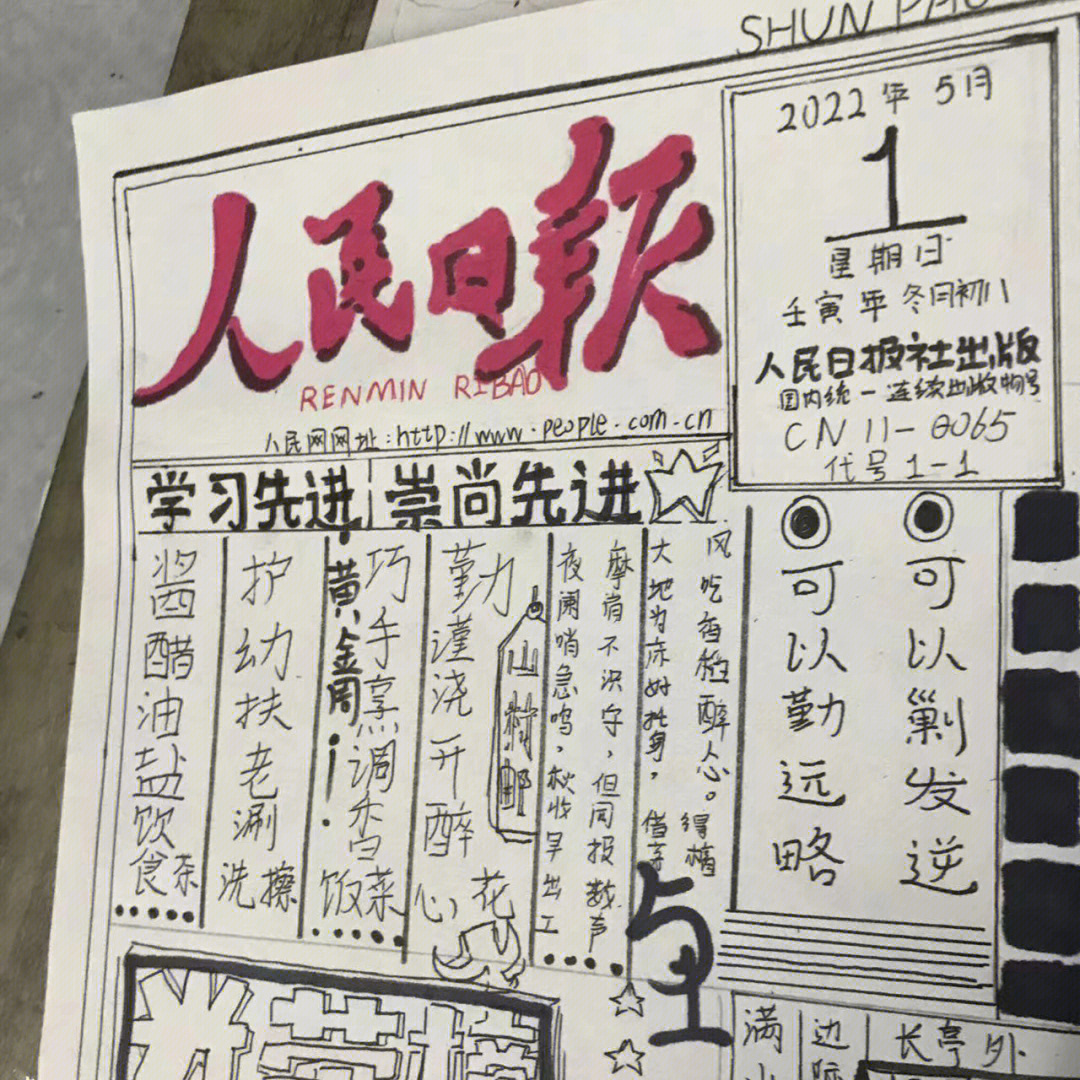 SHUN PAO
人民日报
RENMIN RIBAO
人民网网址:http://www.people.com.cn
2022年5月
1
星期日
壬寅年 冬月初八
人民日报社出版
国内统一连续出版物号
CN 11-0065
代号1-1
学习先进 崇尚先进
可以剿发逆
可以勤远略
风吹稻 醉人心。得
大地为床好托身,借
摩肩不识守,但同报数声
夜阑哨急鸣,秋收早出工
山村邮
勤谨浇开醉心花
巧手烹调香饭菜
黄金周!
护幼扶老涮洗擦
酱醋油盐饮食茶
五一
满
边际
长亭外